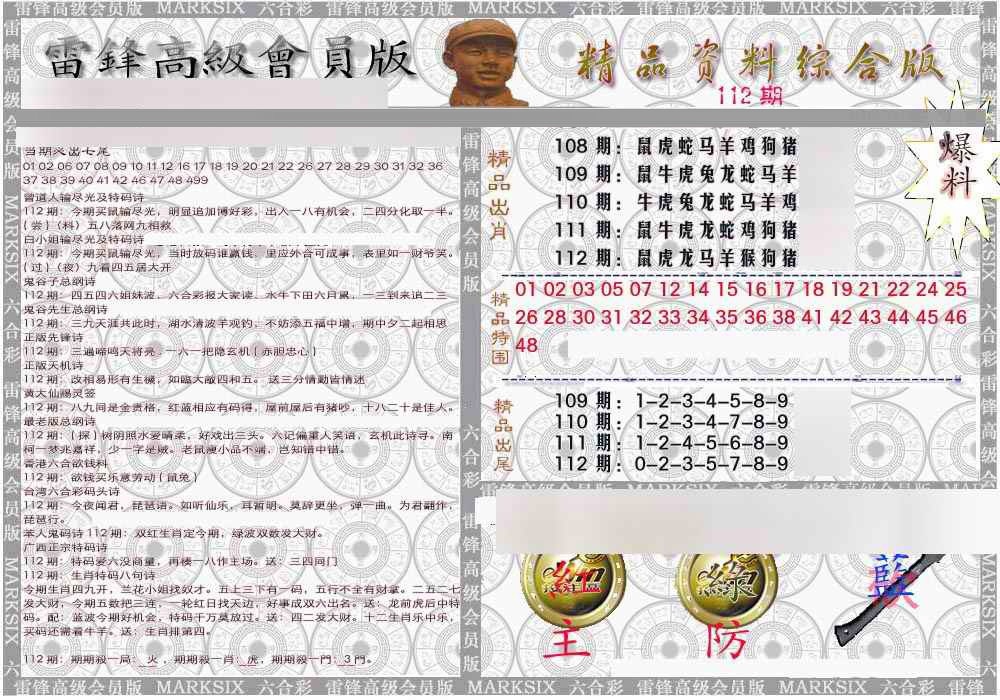 雷锋高级会员版 MARKSIX 六合彩 雷锋高级会员版 MARKSIX 六合彩 雷锋高级会员版 MARKSIX 六合彩 雷锋
雷鋒高級會員版
精品资料综合版
112 期
爆料
当期灵出七尾
01 02 06 07 08 09 10 11 12 16 17 18 19 20 21 22 26 27 28 29 30 31 32 36
37 38 39 40 41 42 46 47 48 499
曾道人输尽光及特码诗
112 期：今期买鼠输尽光，明显追加博好彩，出入一八有机会，二四分化取一半。
{ 尝 }（料）五八落网九相救
白小姐输尽光及特码诗
112 期：今期买鼠输尽光，当时放码谁赢钱，里应外合可成事，表里如一财爷笑。
{ 过 }（夜）九看四五居大开
鬼谷子总纲诗
112 期：四五四六姐妹波，六合彩报大家读，水牛下田六月累，一三到来追二三
鬼谷先生总纲诗
112 期：三九天涯共此时，湖水清波羊观钓，不妨添五福中增，期中夕二起相思
正版先锋诗
112 期：三遍啼鸣天将亮，一六一把隐玄机 { 赤胆忠心 }
正版天机诗
112 期：改相易形有生機，如臨大敵四和五。 送三分情勤皆情迷
黄大仙赐灵签
112 期：八九同是金贵格，红蓝相应有码得，屋前屋后有猪吵，十八二十是佳人。
最老版总纲诗
112 期：{ 探 } 树阴照水爱晴柔，好戏出三头。六记偏重人笑语，玄机此诗寻。南
柯一梦兆嘉祥，少一字是贼。老鼠瘦小品不端，岂知错中错。
香港六合欲钱料
112 期：欲钱买乐意劳动 { 鼠兔 }
台湾六合彩码头诗
112 期：今夜闻君，琵琶语。如听仙乐，耳暂明。莫辞更坐，弹一曲。为君翻作，
琵琶行。
苯人鬼码诗 112 期：双红生肖定今期，绿波双数发大财。
广西正宗特码诗
112 期：特码爱六没商量，再楼一八作主场。送：三四同门
112 期：生肖特码八句诗
今期生肖四九开，兰花小姐找奴才。五上三下有一码，五行不全有财掌。二五二七
发大财，今期五数把三连，一轮红日找天边，好事成双六出名。送：龙前虎后中特
码。配：蓝波今期好机会，特码千万莫放过。送：四二发大财。十二生肖乐中乐，
买码还需看牛羊。送：生肖排第四。
112 期：期期殺一局：火 ，期期殺一肖：虎，期期殺一門：3 門。
精品出肖
108 期：鼠虎蛇马羊鸡狗猪
109 期：鼠牛虎兔龙蛇马羊
110 期：牛虎兔龙蛇马羊鸡
111 期：鼠牛虎龙蛇鸡狗猪
112 期：鼠虎龙马羊猴狗猪
精品特围
01 02 03 05 07 12 14 15 16 17 18 19 21 22 24 25
26 28 30 31 32 33 34 35 36 38 41 42 43 44 45 46
48
精品出尾
109 期：1-2-3-4-5-8-9
110 期：1-2-3-4-7-8-9
111 期：1-2-4-5-6-8-9
112 期：0-2-3-5-7-8-9
紅
主
綠
防
藍
雷锋高级会员版 MARKSIX 六合彩 雷锋高级会员版 MARKSIX 六合彩 雷锋高级会员版 MARKSIX 六合彩 雷锋